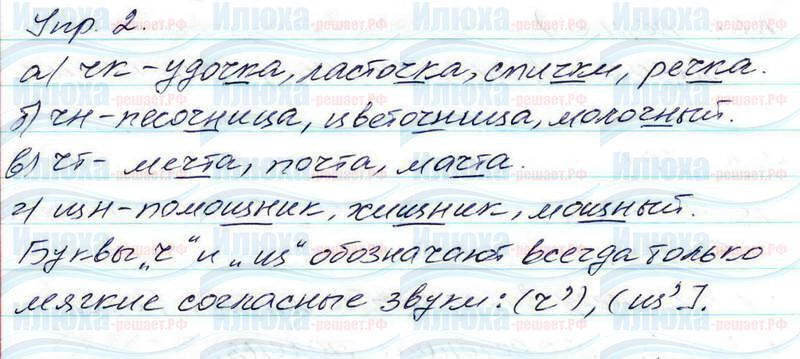 Упр. 2.
а) чк - удочка, ласточка, спички, речка.
б) чн - песочница, цветочница, молочный.
в) чт - мечта, почта, мачта.
г) щн - помощник, хищник, мощный.
Буквы „ч“ и „щ“ обозначают всегда только
мягкие согласные звуки: (ч’), (щ’].
Илюха
-решает.РФ